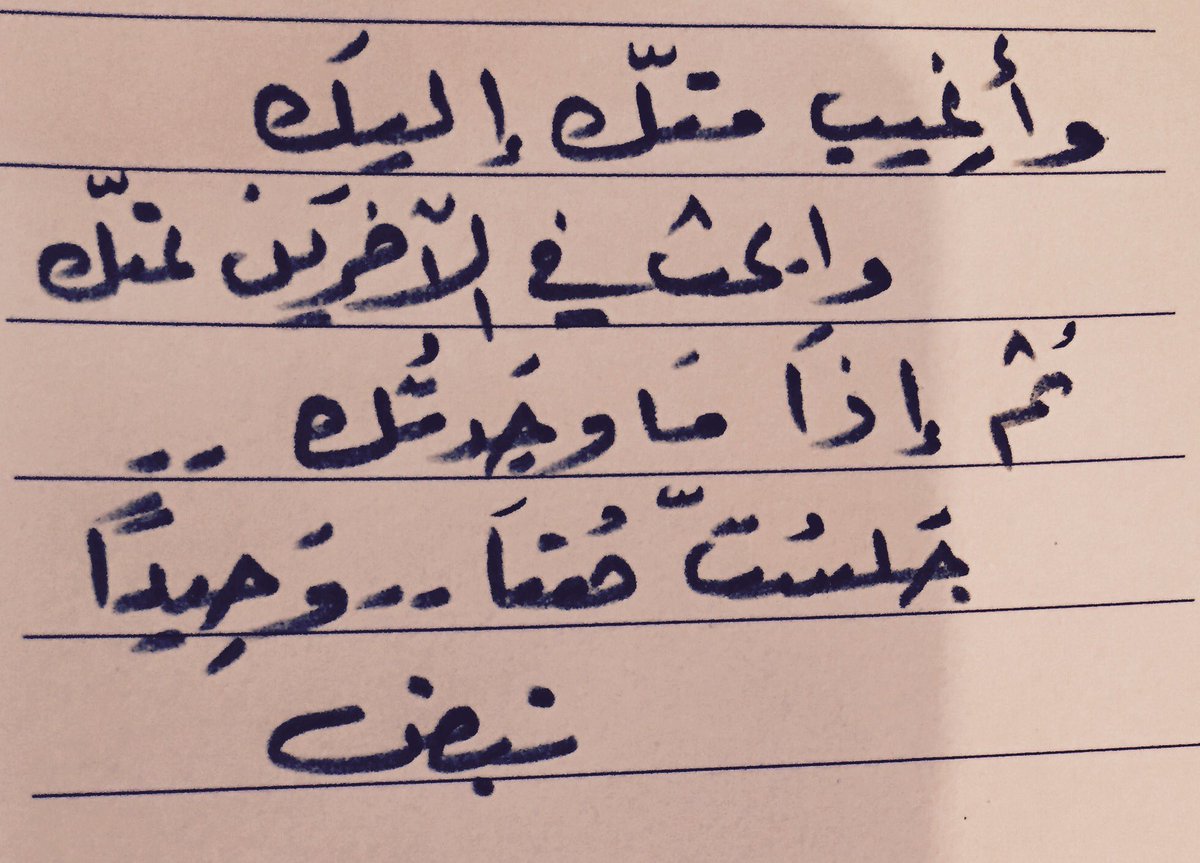 وأغِيب منّك إليكَ
وابحث في الآخَرَين عنّك
ثُم إذَا مَا وجَدتُك ..
جَلسُتّ هُنَا .. وَحِيدًا
نبض